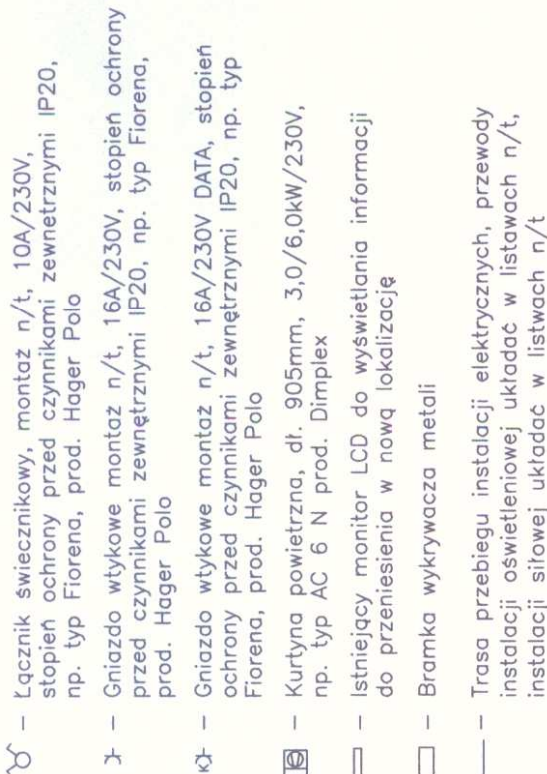 – Łącznik świecznikowy, montaż n/t, 10A/230V,
stopień ochrony przed czynnikami zewnetrznymi IP20,
np. typ Fiorena, prod. Hager Polo
– Gniazdo wtykowe montaż n/t, 16A/230V, stopień ochrony
przed czynnikami zewnętrznymi IP20, np. typ Fiorena,
prod. Hager Polo
K – Gniazdo wtykowe montaż n/t, 16A/230V DATA, stopień
ochrony przed czynnikami zewnętrznymi IP20, np. typ
Fiorena, prod. Hager Polo
– Kurtyna powietrzna, dł. 905mm, 3,0/6,0kW/230V,
np. typ AC 6 N prod. Dimplex
– Istniejący monitor LCD do wyświetlania informacji
do przeniesienia w nową lokalizację
– Bramka wykrywacza metali
– Trasa przebiegu instalacji elektrycznych, przewody
instalacji oświetleniowej układać w listawach n/t,
instalacji siłowej układać w listwach n/t